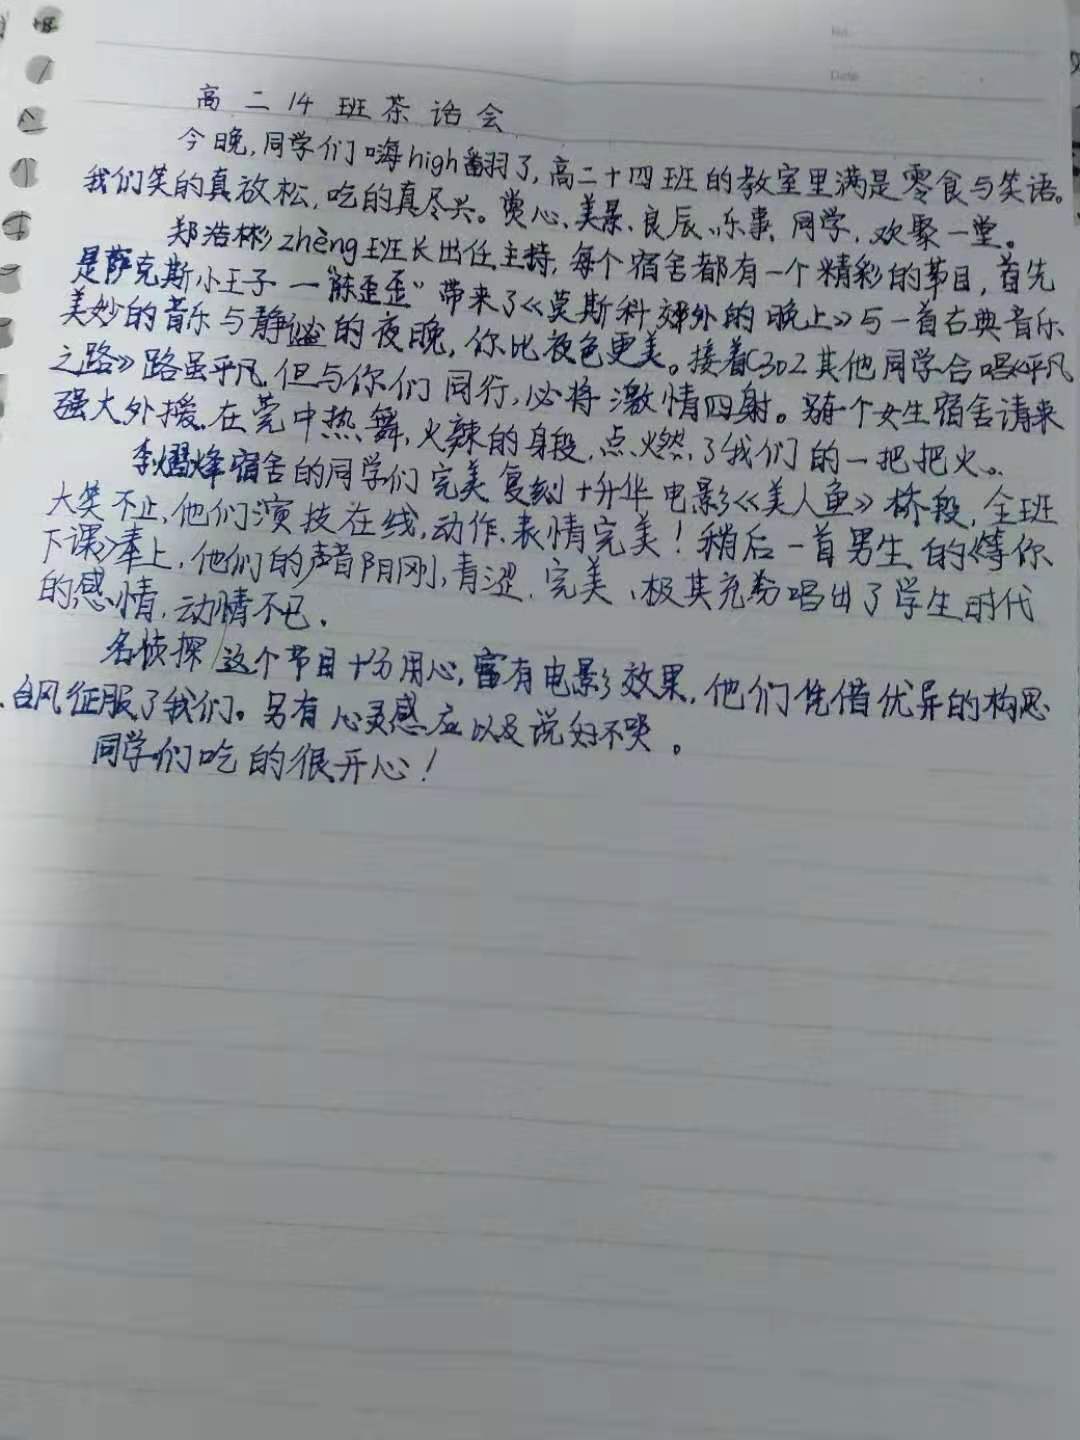 No.
Date
高二14班茶话会
今晚,同学们嗨high翻了,高二十四班的教室里满是零食与笑语。
我们笑的真放松,吃的真尽兴。赏心、美景、良辰、乐事,同学,欢聚一堂。
郑浩彬zhèng班长出任主持,每个宿舍都有一个精彩的节目,首先
是萨克斯小王子一"陈歪歪"带来了《莫斯科郊外的晚上》与一首古典音乐
美妙的音乐与静谧的夜晚,你比夜色更美。接着C302其他同学合唱《平凡
之路》路虽平凡,但与你们同行,必将激情四射。另有一个女生宿舍请来
强大外援,在莞中热舞,火辣的身段,点燃了我们的一把把火。
李熠烽宿舍的同学们完美复刻+升华电影《美人鱼》桥段,全班
大笑不止,他们演技在线,动作、表情完美!稍后一首男生的《等你
下课》奉上,他们的声音阴刚,青涩,完美、极其充分唱出了学生时代
的感情,动情不已.
名侦探这个节目十分用心,富有电影效果,他们凭借优异的构思
、台风征服了我们。另有心灵感应以及说好不哭。
同学们吃的很开心!